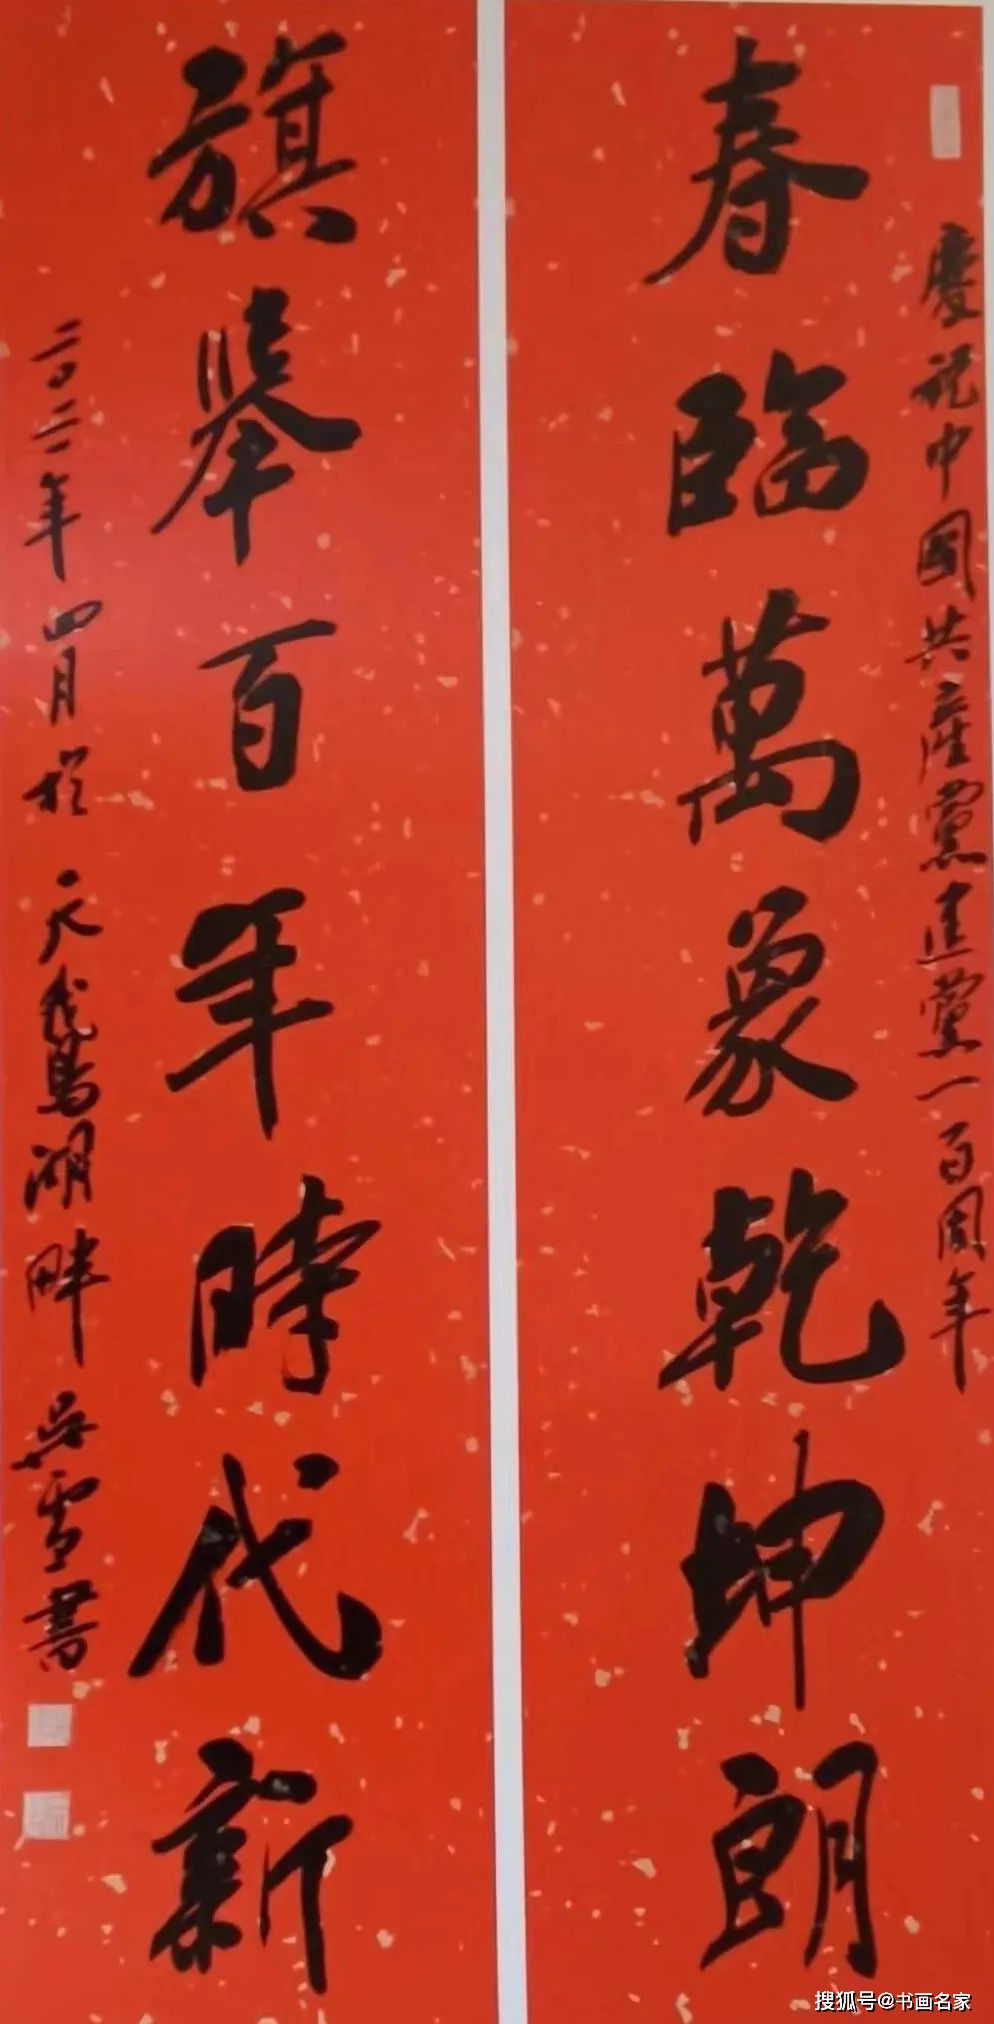 慶祝中國共産黨建黨一百周年
春臨萬象乾坤朗
旗舉百年時代新
二〇二一年四月於天鵝湖畔吳雪書
搜狐号@书画名家